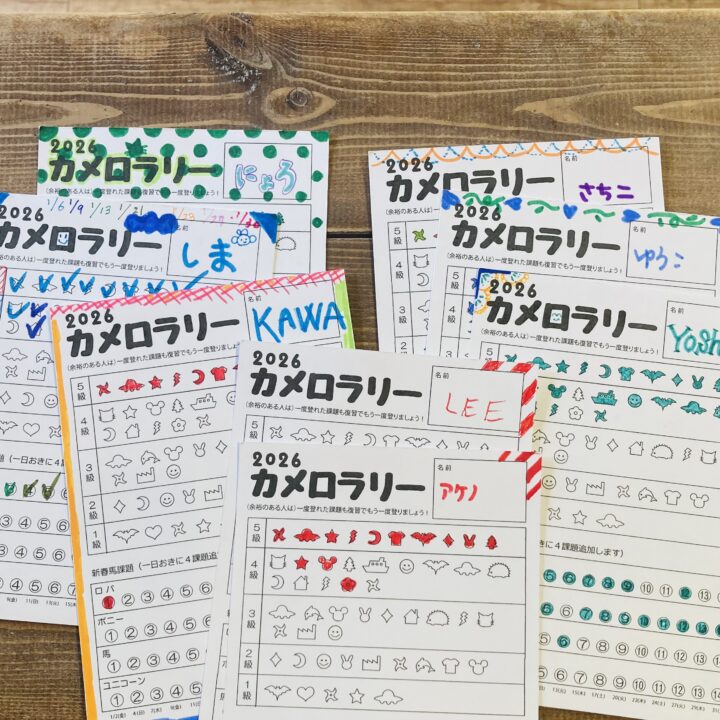 2026
カメロラリー
名前
にょろ
(余裕のある人は)一度登れた課題も復習でもう一度登りましょう!
2026
カメロラリー
名前
さちこ
(余裕のある人は)一度登れた課題も復習
5級
4級
2026
1/6 1/9 1/13 1/21
カメロラリー
名前
しま
(余裕のある人は)一度登れた課題も復習でもう一度登りましょう!
(一日おきに4課題
2026
カメロラリー
名前
ゆうこ
(余裕のある人は)一度登れた課題も復習でもう一度登りましょう!
2026
カメロラリー
名前
KAWA
(余裕のある人は)一度登れた課題も復習でもう一度登りましょう!
5級
4級
3級
2級
1級
新春馬課題(一日おきに4課題追加
ロバ
① ② ③ ④ ⑤
ポニー
① ② ③ ④ ⑤
馬
① ② ③ ④ ⑤
ユニコーン
① ② ③ ④ ⑤
1/2(金) 4(日) 7(水) 9(金)
2026
カメロラリー
名前
Yosh
(余裕のある人は)一度登れた課題も復習でもう一度登りましょう!
5級
(一日おきに4課題追加します)
2026
カメロラリー
名前
LEE
(余裕のある人は)一度登れた課題も復習でもう一度登りましょう!
5級
2026
カメロラリー
名前
アケノ
(余裕のある人は)一度登れた課題も復習でもう一度登りましょう!
5級
4級
3級
2級
1級